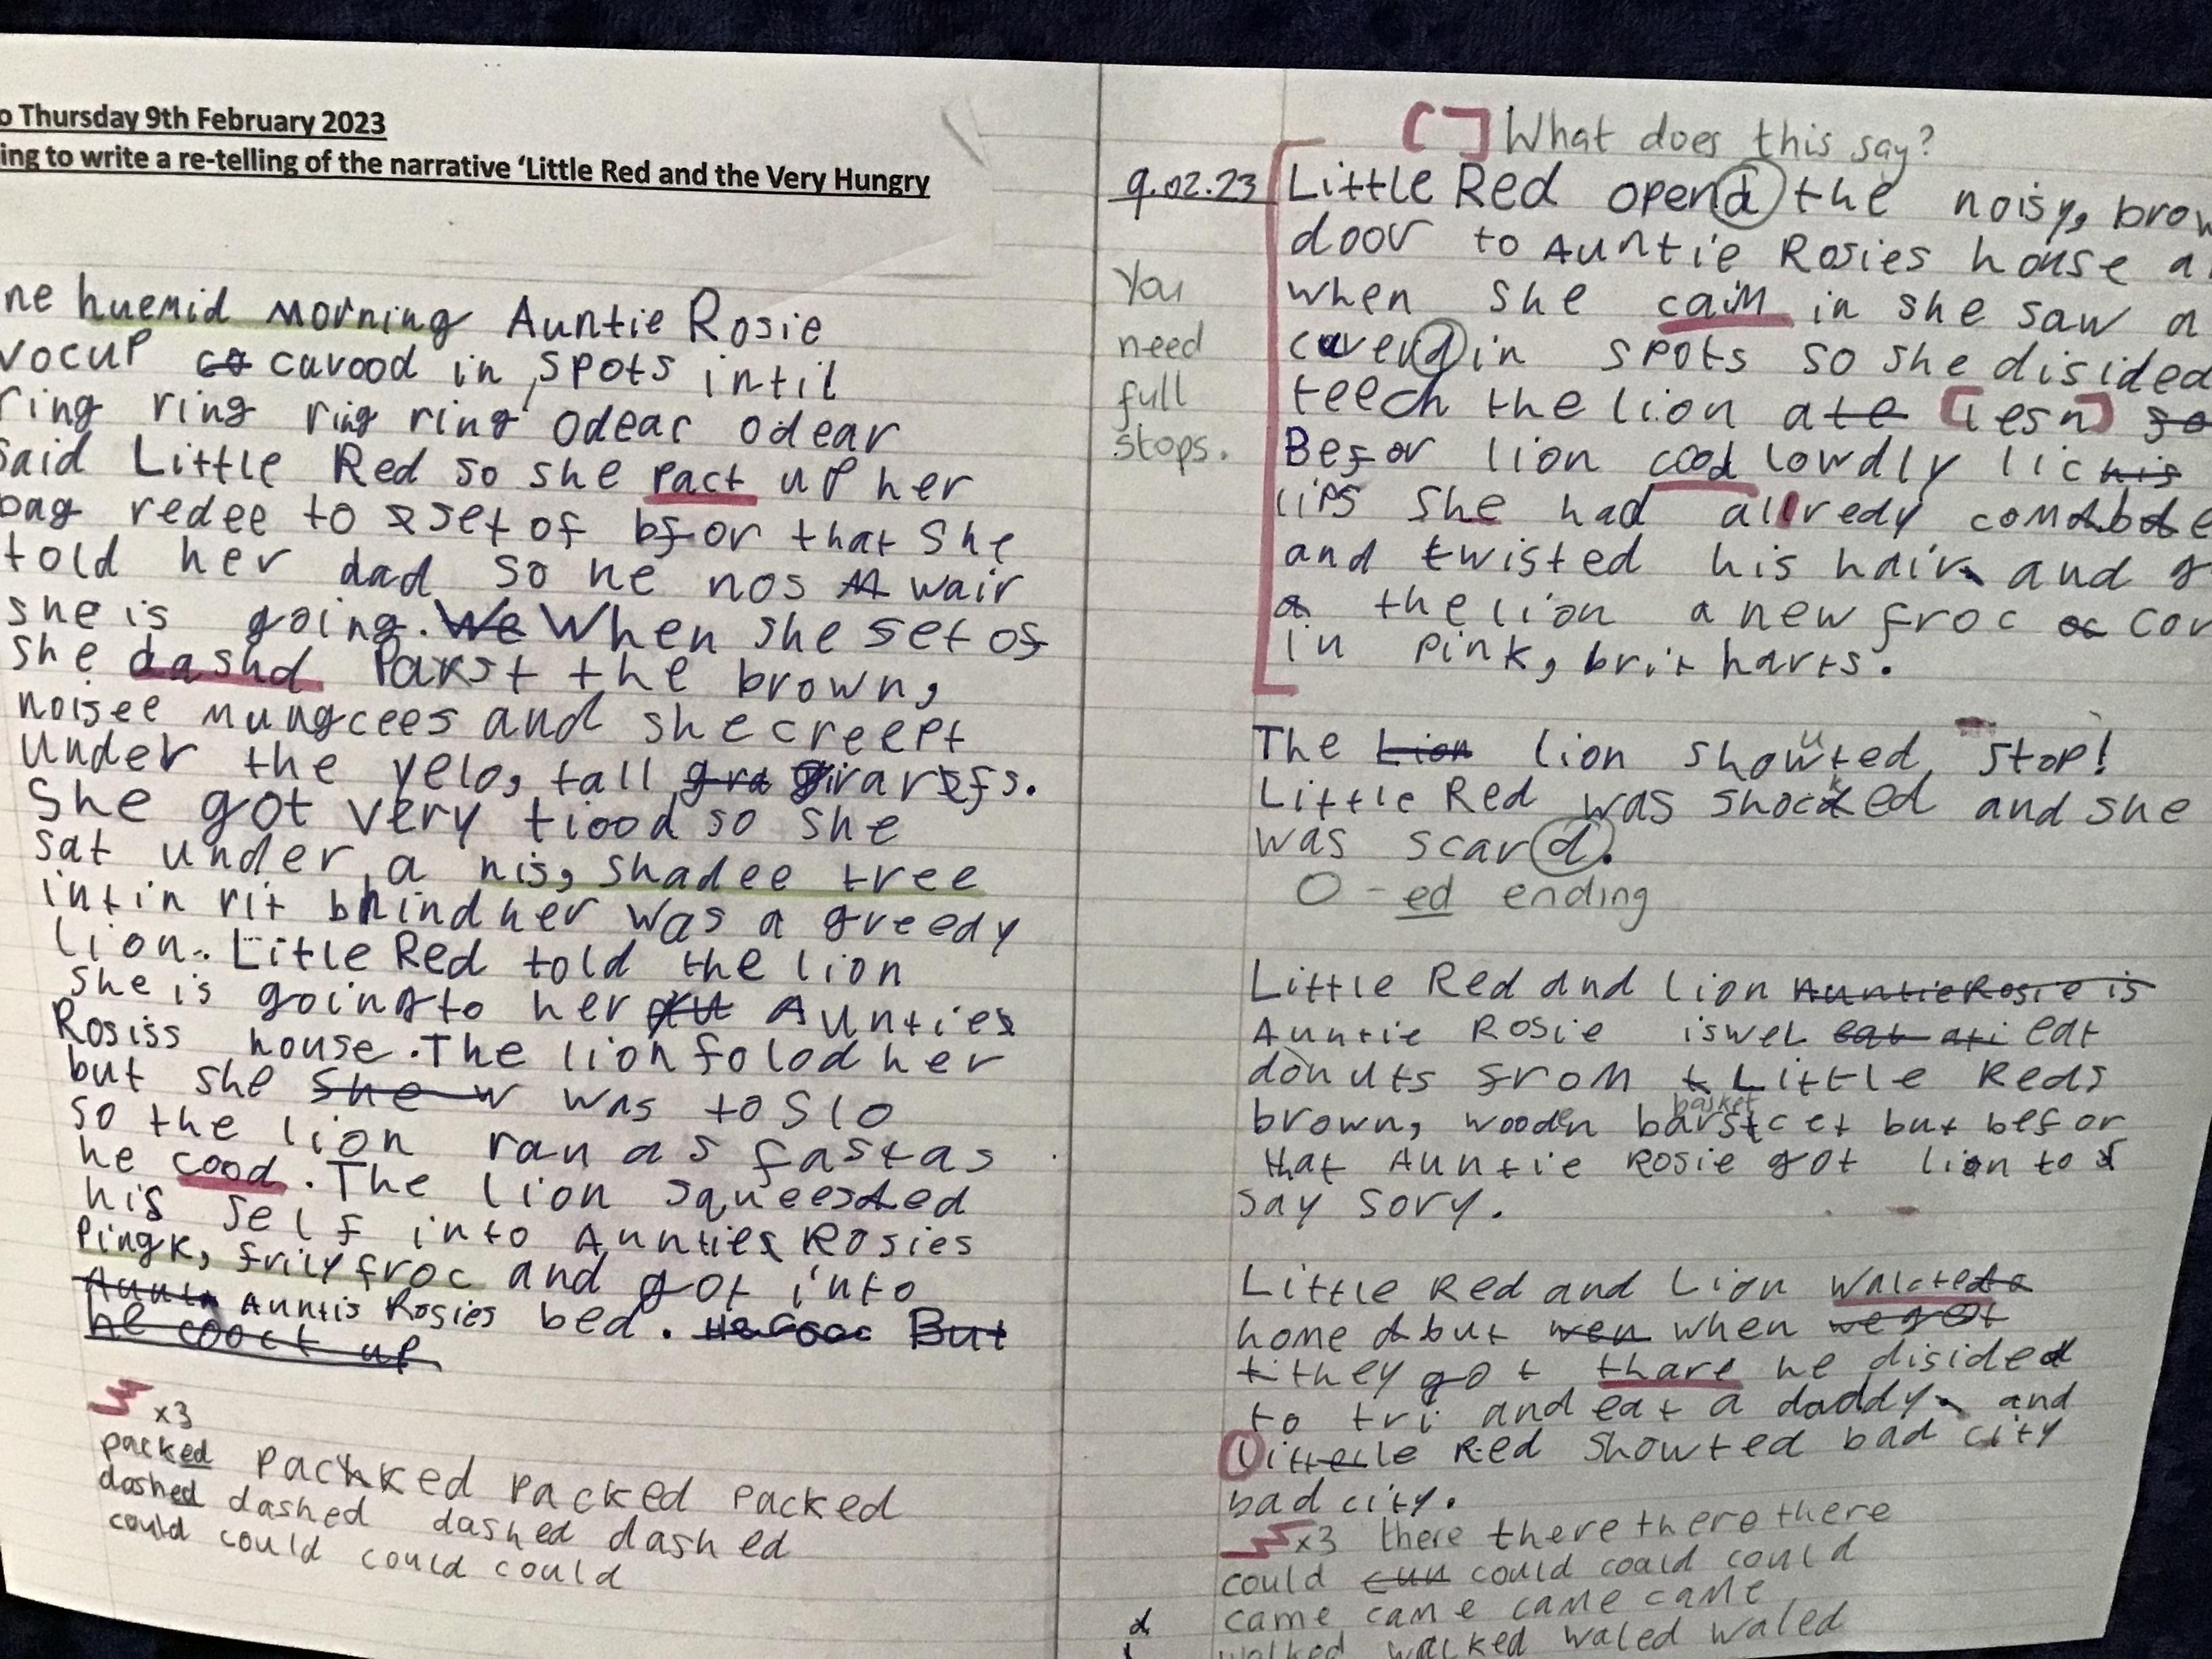 Thursday 9th February 2023
ing to write a re-telling of the narrative ‘Little Red and the Very Hungry
ne huemid morning Auntie Rosie
vocup cavood in spots intil
ring ring ring ring odear odear
said Little Red so she pact up her
bag redee to set of bfor that she
told her dad so he nos wair
she is going. We When she set of
she dashd parst the brown,
noisee mungcees and she creept
under the yelo, tall girarfs.
She got very tiood so she
sat under a nis, shadee tree
intin rit bhind her was a greedy
lion. Little Red told the lion
she is going to her Aunties
Rosiss house. The lion folod her
but she she w was to slo
so the lion ran as fast as
he cood. The lion squeesed
his self into Aunties Rosies
Pingk, frily froc and got into
Auntis Rosies bed. But
he cooct up
x3
packed packked packed packed
dashed dashed dashed dashed
could could could could
[ ] What does this say?
9.02.23 Little Red opend the noisy, brow
door to Auntie Rosies house a
You
when she caim in she saw a
need
caverd in spots so she disided
full
teech the lion ate [lesn] so
stops.
Befor lion cood lowdly lic his
lips she had allredy
and twisted his hair and g
the lion a new froc cov
in pink, brit harts.
The Lion lion showted stop!
Little Red was shocked and she
was scard.
O -ed ending
Little Red and lion Auntie Rosie is
Auntie Rosie is wel eat ati eat
donuts from t Little Reds
basket
brown, wooden barstcet but befor
that Auntie Rosie got lion to
say sory.
Little Red and Lion walcted
home but wen when we got
they got thare he disided
to tri and eat a daddy and
Red showted bad city
bad city.
x3 there there there there
could could could could
came came came came
walked walcked waled waled